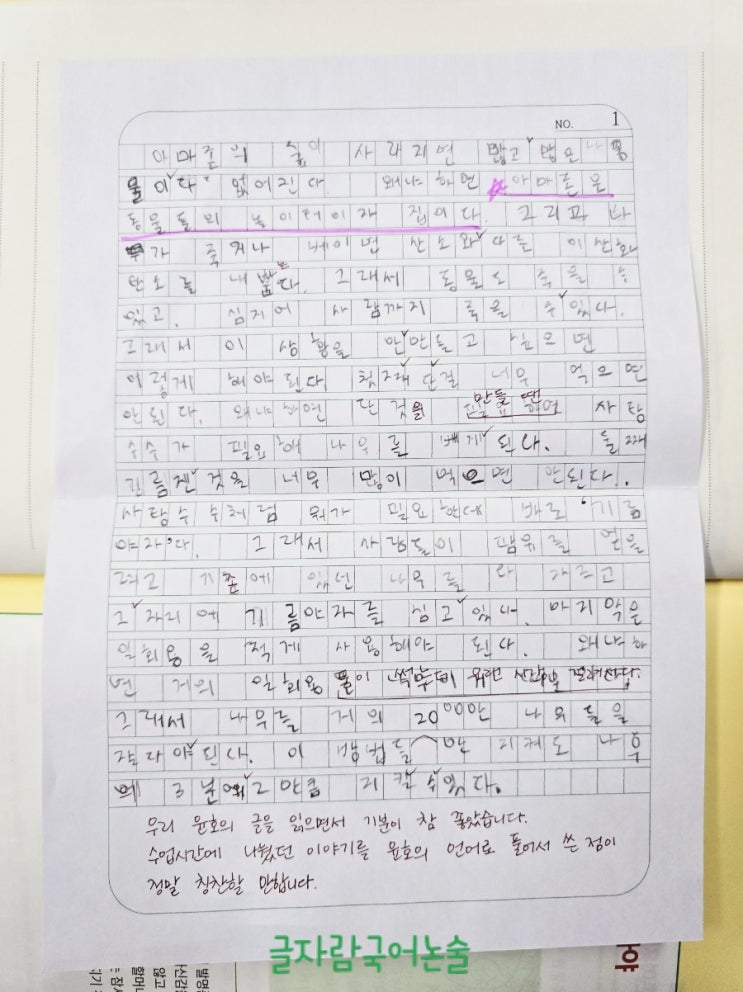 NO. 1
아마존의 숲이 사라지면 많고 많은 나용
물이 다 없어진다. 왜냐하면 아마존은
동물들의 놀이터이자 집이다. 그리고 나
무가 죽거나 베이면 산소와 다른 이산화
탄소를 내뿜는다. 그래서 동물도 죽을 수
있고, 심지어 사람까지 죽을 수 있다.
그래서 이 상황을 안 만들고 싶으면
이렇게 해야 된다. 첫재 단걸 너무 먹으면
안된다. 왜냐하면 단 것을 만들 땐 사탕
수수가 필요해 나무를 베게 된다. 둘째
기름젠 것을 너무 많이 먹으면 안된다.
사탕수수처럼 뭐가 필요한데 바로 기름
야자다. 그래서 사람들이 팜유를 얻을
려고 기존에 있던 나무를 다 자르고
그 자리에 기름야자를 심고 있다. 마지막은
일회용을 적게 사용해야 된다. 왜냐하
면 거의 일회용품이 썩는데 오랜 시간이
그래서 나무를 거의 20000만 나무들을
잘라야 된다. 이 방법들만 지켜도 나무
그만큼 지킬 수 있다.
우리 윤호의 글을 읽으면서 기분이 참 좋았습니다.
수업시간에 나눴던 이야기를 윤호의 언어로 풀어서 쓴 점이
정말 칭찬할 만합니다.
글자람국어논술